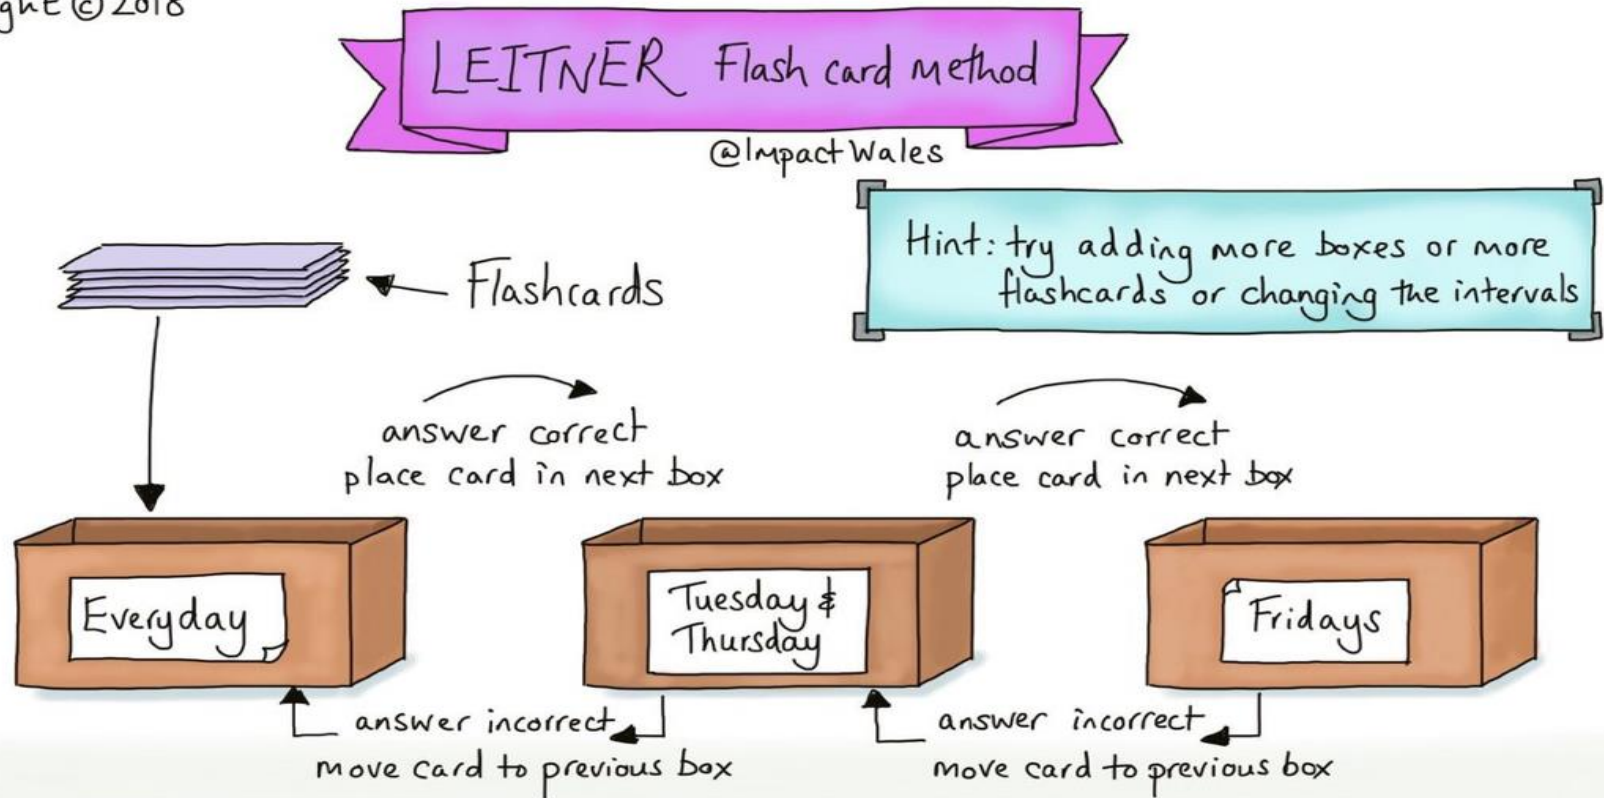 © 2018
LEITNER Flash card method
@ImpactWales
Hint: try adding more boxes or more
flashcards or changing the intervals
Flashcards
answer correct
place card in next box
answer correct
place card in next box
Everyday
Tuesday &
Thursday
Fridays
answer incorrect
move card to previous box
answer incorrect
move card to previous box